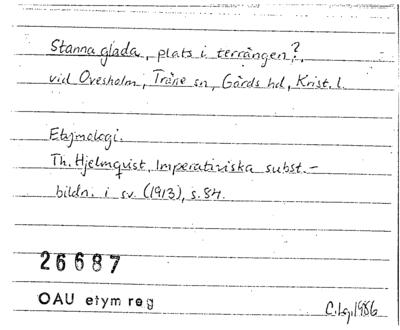 Stanna glada, plats i terrängen?,
vid Ovesholm, Träne sn, Gärds hd, Krist. l.
Etymologi.
Th. Hjelmqvist, Imperativiska subst.-
bildn. i sv. (1913), s. 84.
26687
OAU etym reg
C.Lg. 1986